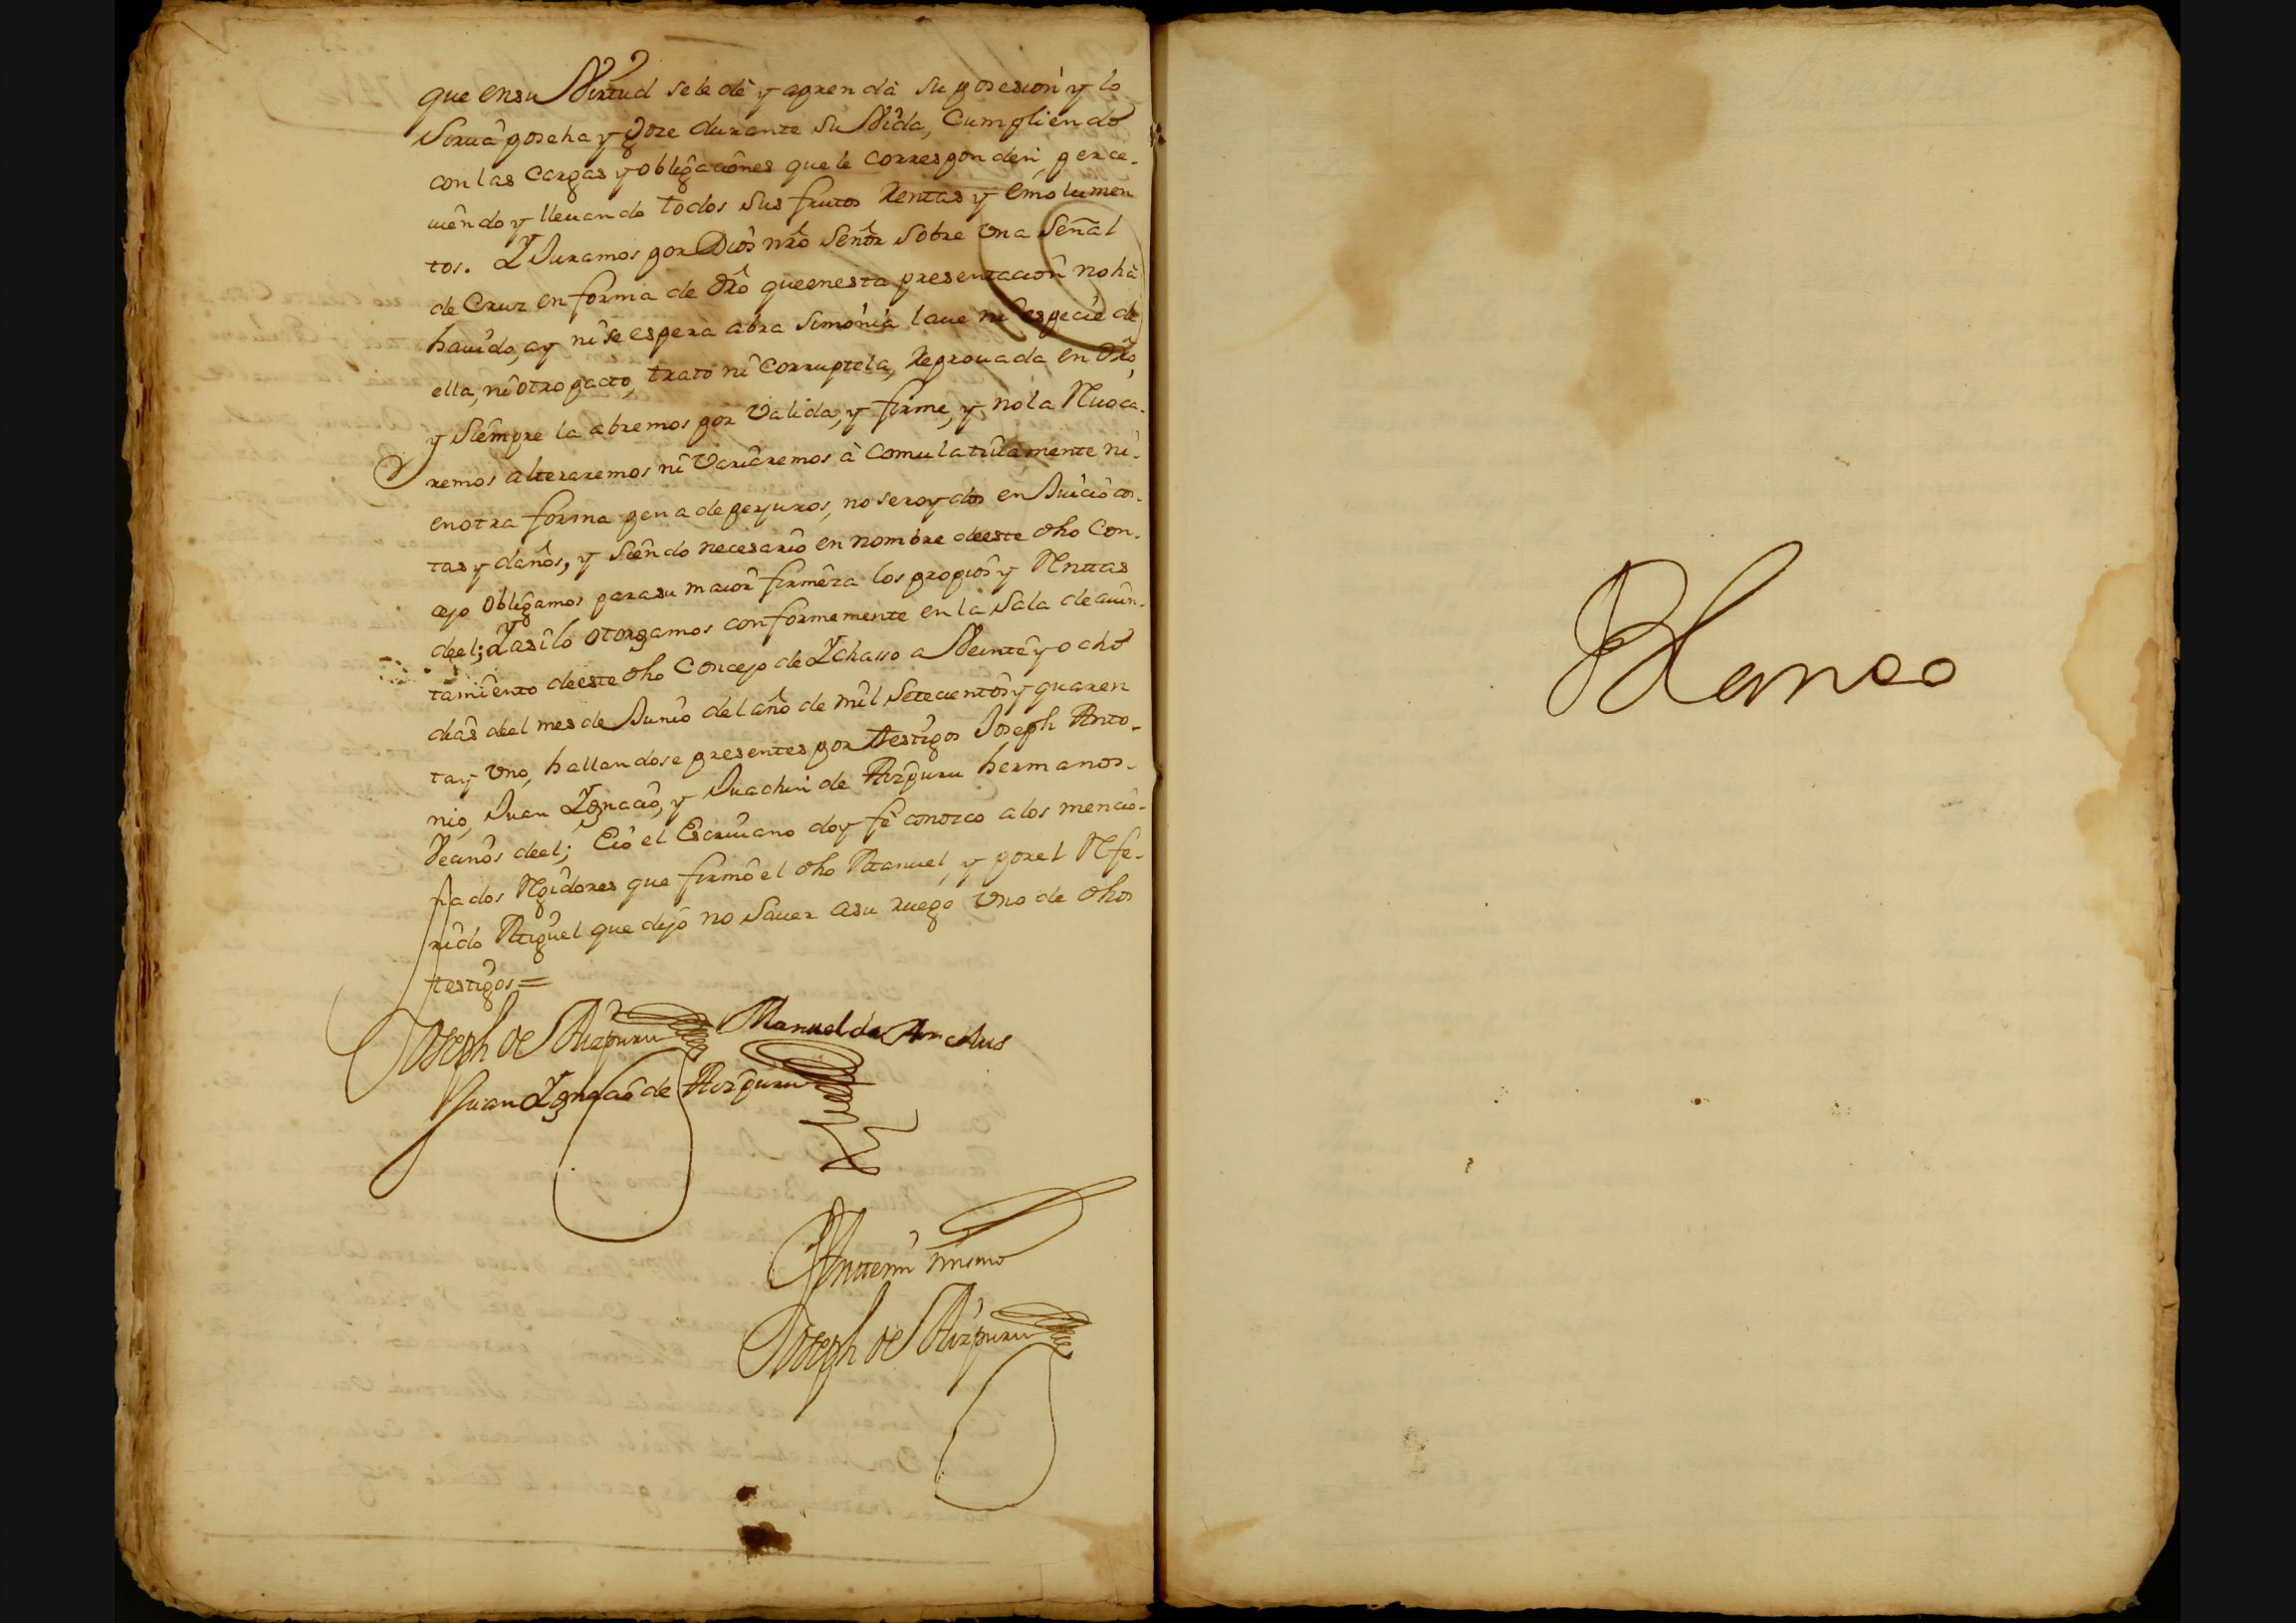 que ensu Virtud sele dè y aprenda su posesion y lo
Sirua poseha y Goze durante su Vida, Cumpliendo
con las Cargas y obligaciones que le corresponden, perce-
uiendo y lleuando todos sus frutos Rentas y emolumen
tos. Y Juramos por Dios nrô Señor sobre una Señal
de Cruz en forma de drô queenesta presentacion no hà
hauido, ay ni se espera abra Simonia laue ni especie de
ella, ni otro pacto, trato ni Corruptela, Reprouada en drô,
y Siempre la abremos por Valida, y firme, y nola Reuoca-
remos alteraremos ni Variaremos à Comulatiuamente ni-
enotra forma pena de perjuros, no ser oydos en Juicio cos-
tas y daños, y Siendo necesario en nombre deeste dho Con-
cejo obligamos parasu maior firmeza los propios y Rentas
deel; Y asilo otorgamos conformemente en la Sala de aiun-
tamiento deeste dho Concejo de Ychasso a Veinte y ocho
dias deel mes de Junio del año de mil Setecientos y quaren
tay Uno, hallandose presentes por testigos Joseph Anto-
nio, Juan Ygnacio, y Juachin de Aizpuru hermanos-
Vecinos deel; Eio el Escriuano doy fè conozco alos mencio-
nados Regidores que firmò el dho Manuel, y por el Refe-
rido Miguel que dijo no Sauer asu ruego Uno de dhos
testigos =
Joseph de Aizpuru Manuel de
Juan Ygnacio de Aizpuru
Antemi mismo
Joseph de Aizpuru
Blanco